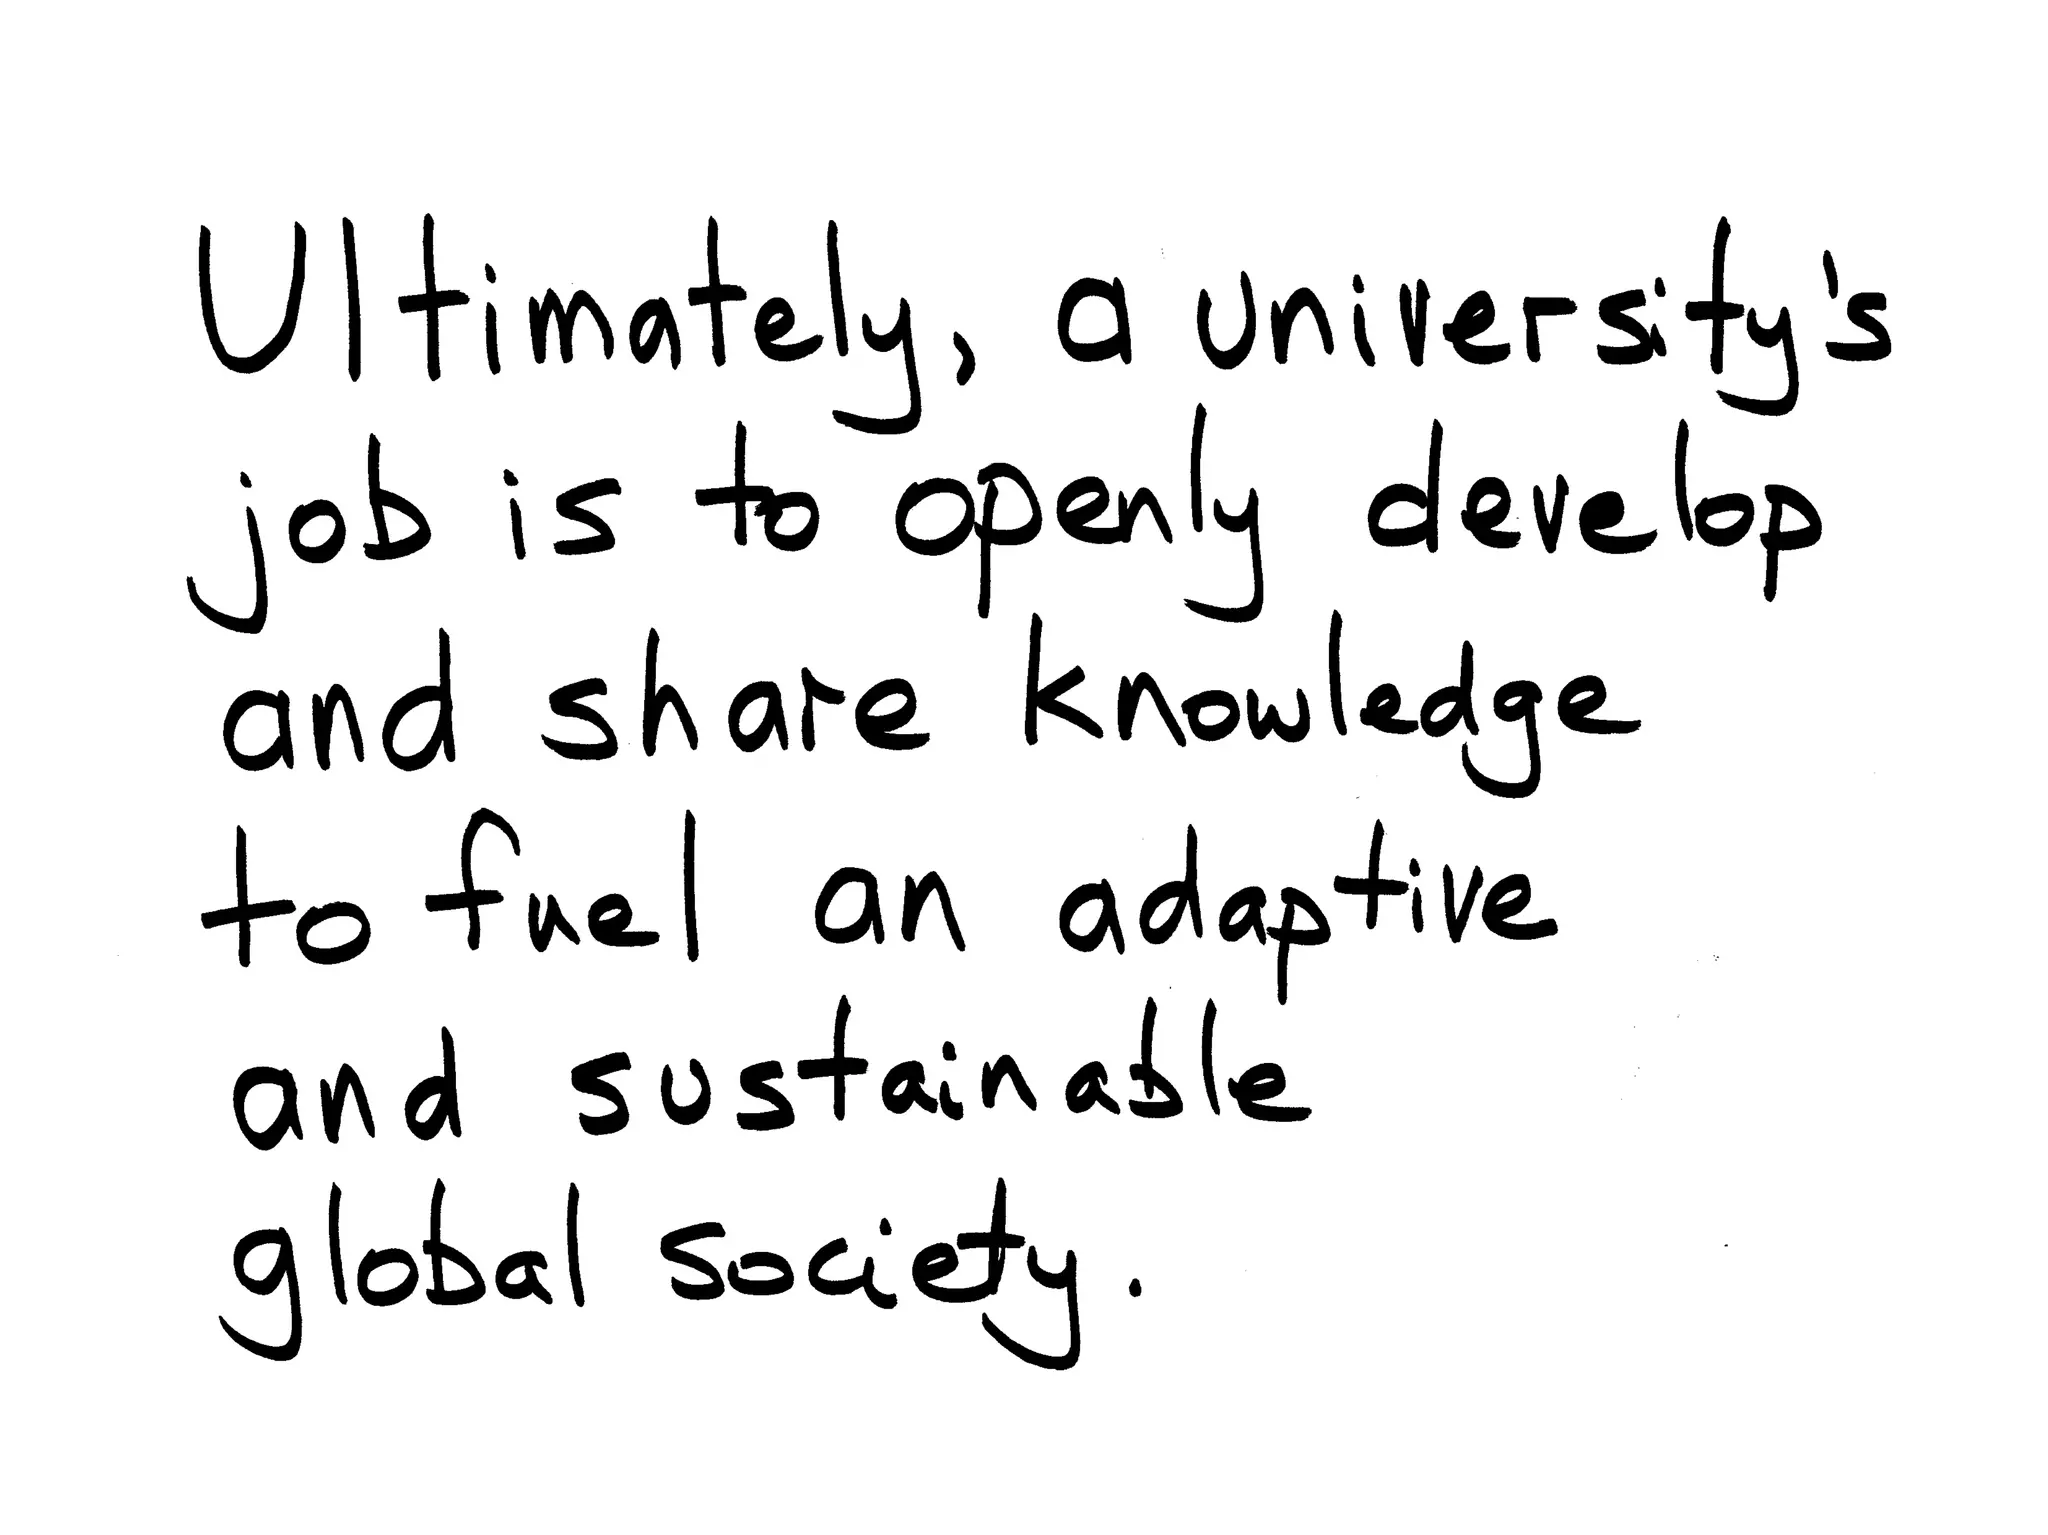 Ultimately, a university's
job is to openly develop
and share knowledge
to fuel an adaptive
and sustainable
global society.